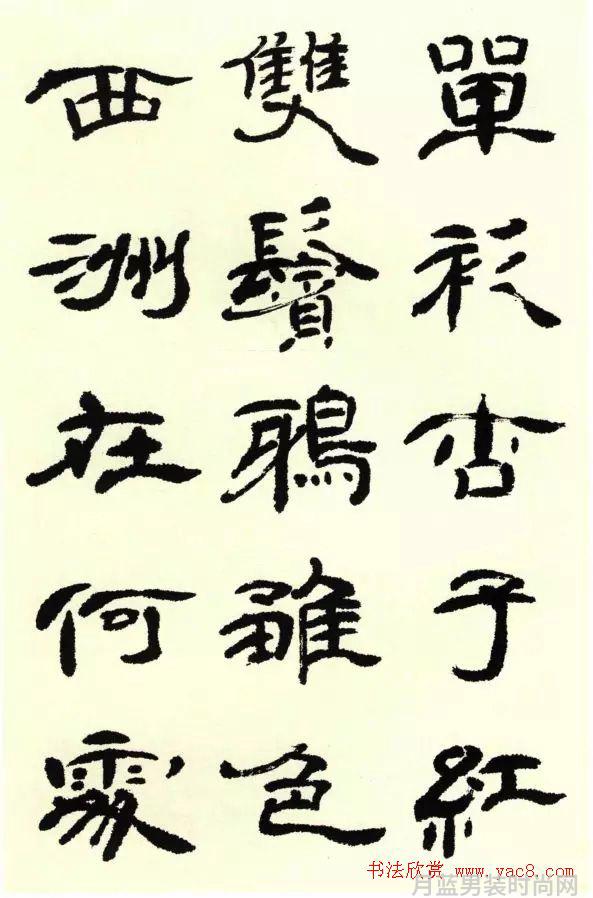 單衫杏子紅
雙鬢鴉雛色
西洲在何處
书法欣赏 www.yac8.com
月蓝男装时尚网